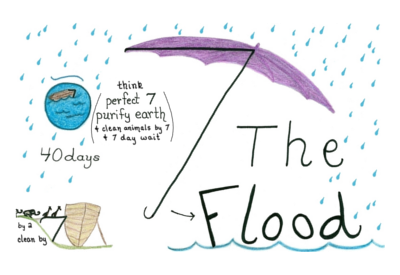 think
perfect 7
purify earth
+ clean animals by 7
+ 7 day wait
40 days
The
Flood
by 2
clean by 7